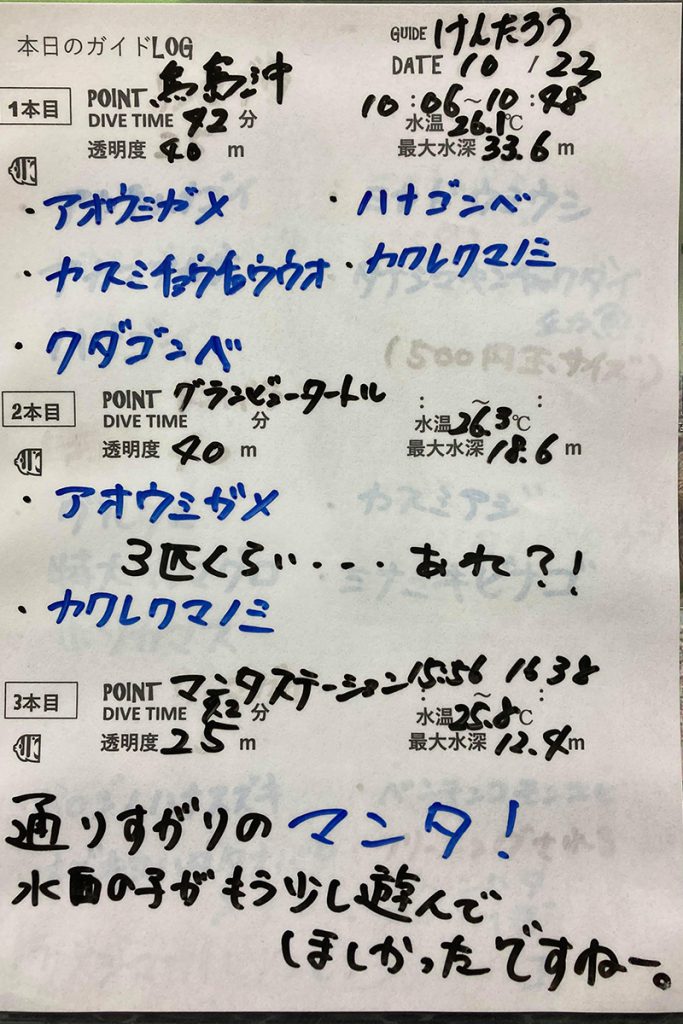 本日のガイドLOG
GUIDE けんたろう
DATE 10 / 23
1本目
POINT 鳥島沖
10:06~10:48
DIVE TIME 42 分
水温 26.1℃
透明度 40 m
最大水深 33.6 m
・アオウミガメ ・ハナゴンベ
・カスミチョウチョウウオ ・カクレクマノミ
・クダゴンベ
2本目
POINT グランビュータートル
: ~ :
DIVE TIME 分
水温 26.3℃
透明度 40 m
最大水深 18.6 m
・アオウミガメ
3匹くらい・・・・あれ?!
・カクレクマノミ
3本目
POINT マンタステーション
15:56 ~ 16:38
DIVE TIME 42 分
水温 25.8℃
透明度 25 m
最大水深 12.4 m
通りすがりのマンタ!
水面の子がもう少し遊んで
ほしかったですねー。